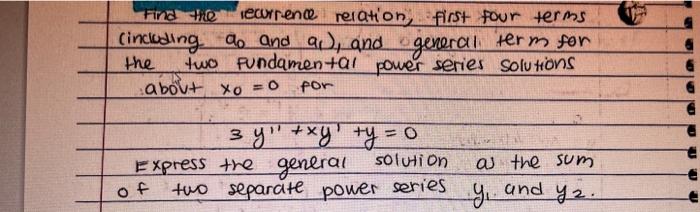 Find the recurrence relation, first four terms
(including a₀ and a₁), and general term for
the two fundamental power series solutions
about x₀ = 0 for
3y'' + xy' + y = 0
Express the general solution as the sum
of two separate power series y₁ and y₂.